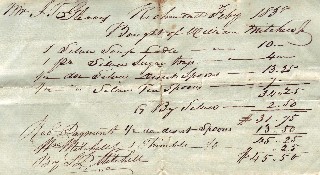 Mr. J. T. Richmond Feby 1835
Bought of William Mitchell Jr
1 Silver Soup Ladle — 10 —
1 pr Silver Sugar Tongs — 4 —
½ doz Silver Desert Spoons — 13.25
Silver Tea Spoons — 7 —
34.25
By Silver — 2.50
$ 31.75
Recd Payment ½ doz desert Spoons 13.50
45.25
Wm Mitchell Jr 1 Thimble .25
By S. P. Mitchell $ 45.50